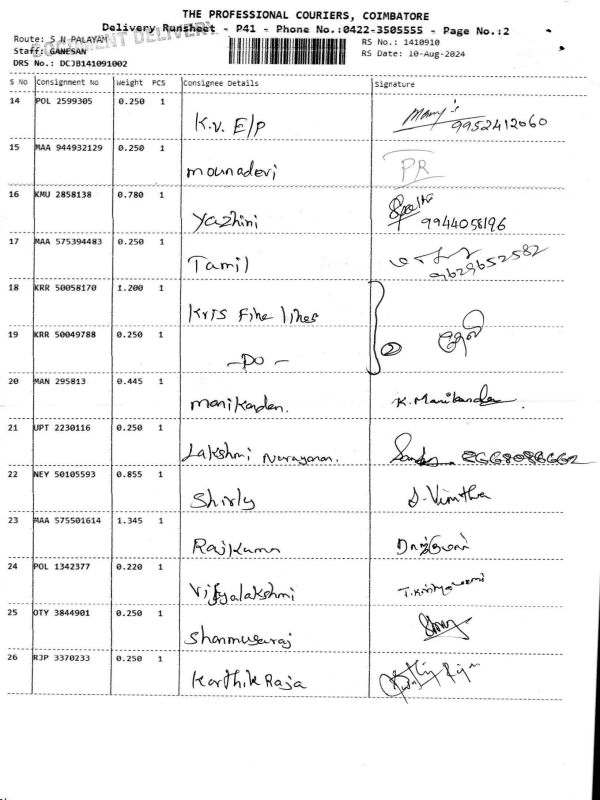 THE PROFESSIONAL COURIERS, COIMBATORE
Delivery Runsheet - P41 - Phone No.:0422-3505555 - Page No.:2
DOCUMENT DELIVERY
Route: S N PALAYAM
RS No.: 1410910
Staff: GANESAN
RS Date: 10-Aug-2024
DRS No.: DCJB141091002
S No Consignment No Weight PCS Consignee Details Signature
14 POL 2599305 0.250 1
K.V. E/P 9952412060
15 MAA 944932129 0.250 1
mounadevi PR
16 KMU 2858138 0.780 1
Yazhini 9944058196
17 MAA 575394483 0.250 1
Tamil 9629652582
18 KRR 50058170 1.200 1
Kris Fine lines
19 KRR 50049788 0.250 1
-DO- 2
20 MAN 295813 0.445 1
manikanden. K. Manikandan
21 UPT 2230116 0.250 1
Lakshmi Narayanan.
22 NEY 50105593 0.855 1
Shirly S. Vinitha
23 MAA 575501614 1.345 1
Rajkumar
24 POL 1342377 0.220 1
Vijyalakshmi
25 OTY 3844901 0.250 1
Shanmugaraj
26 RJP 3370233 0.250 1
Karthik Raja